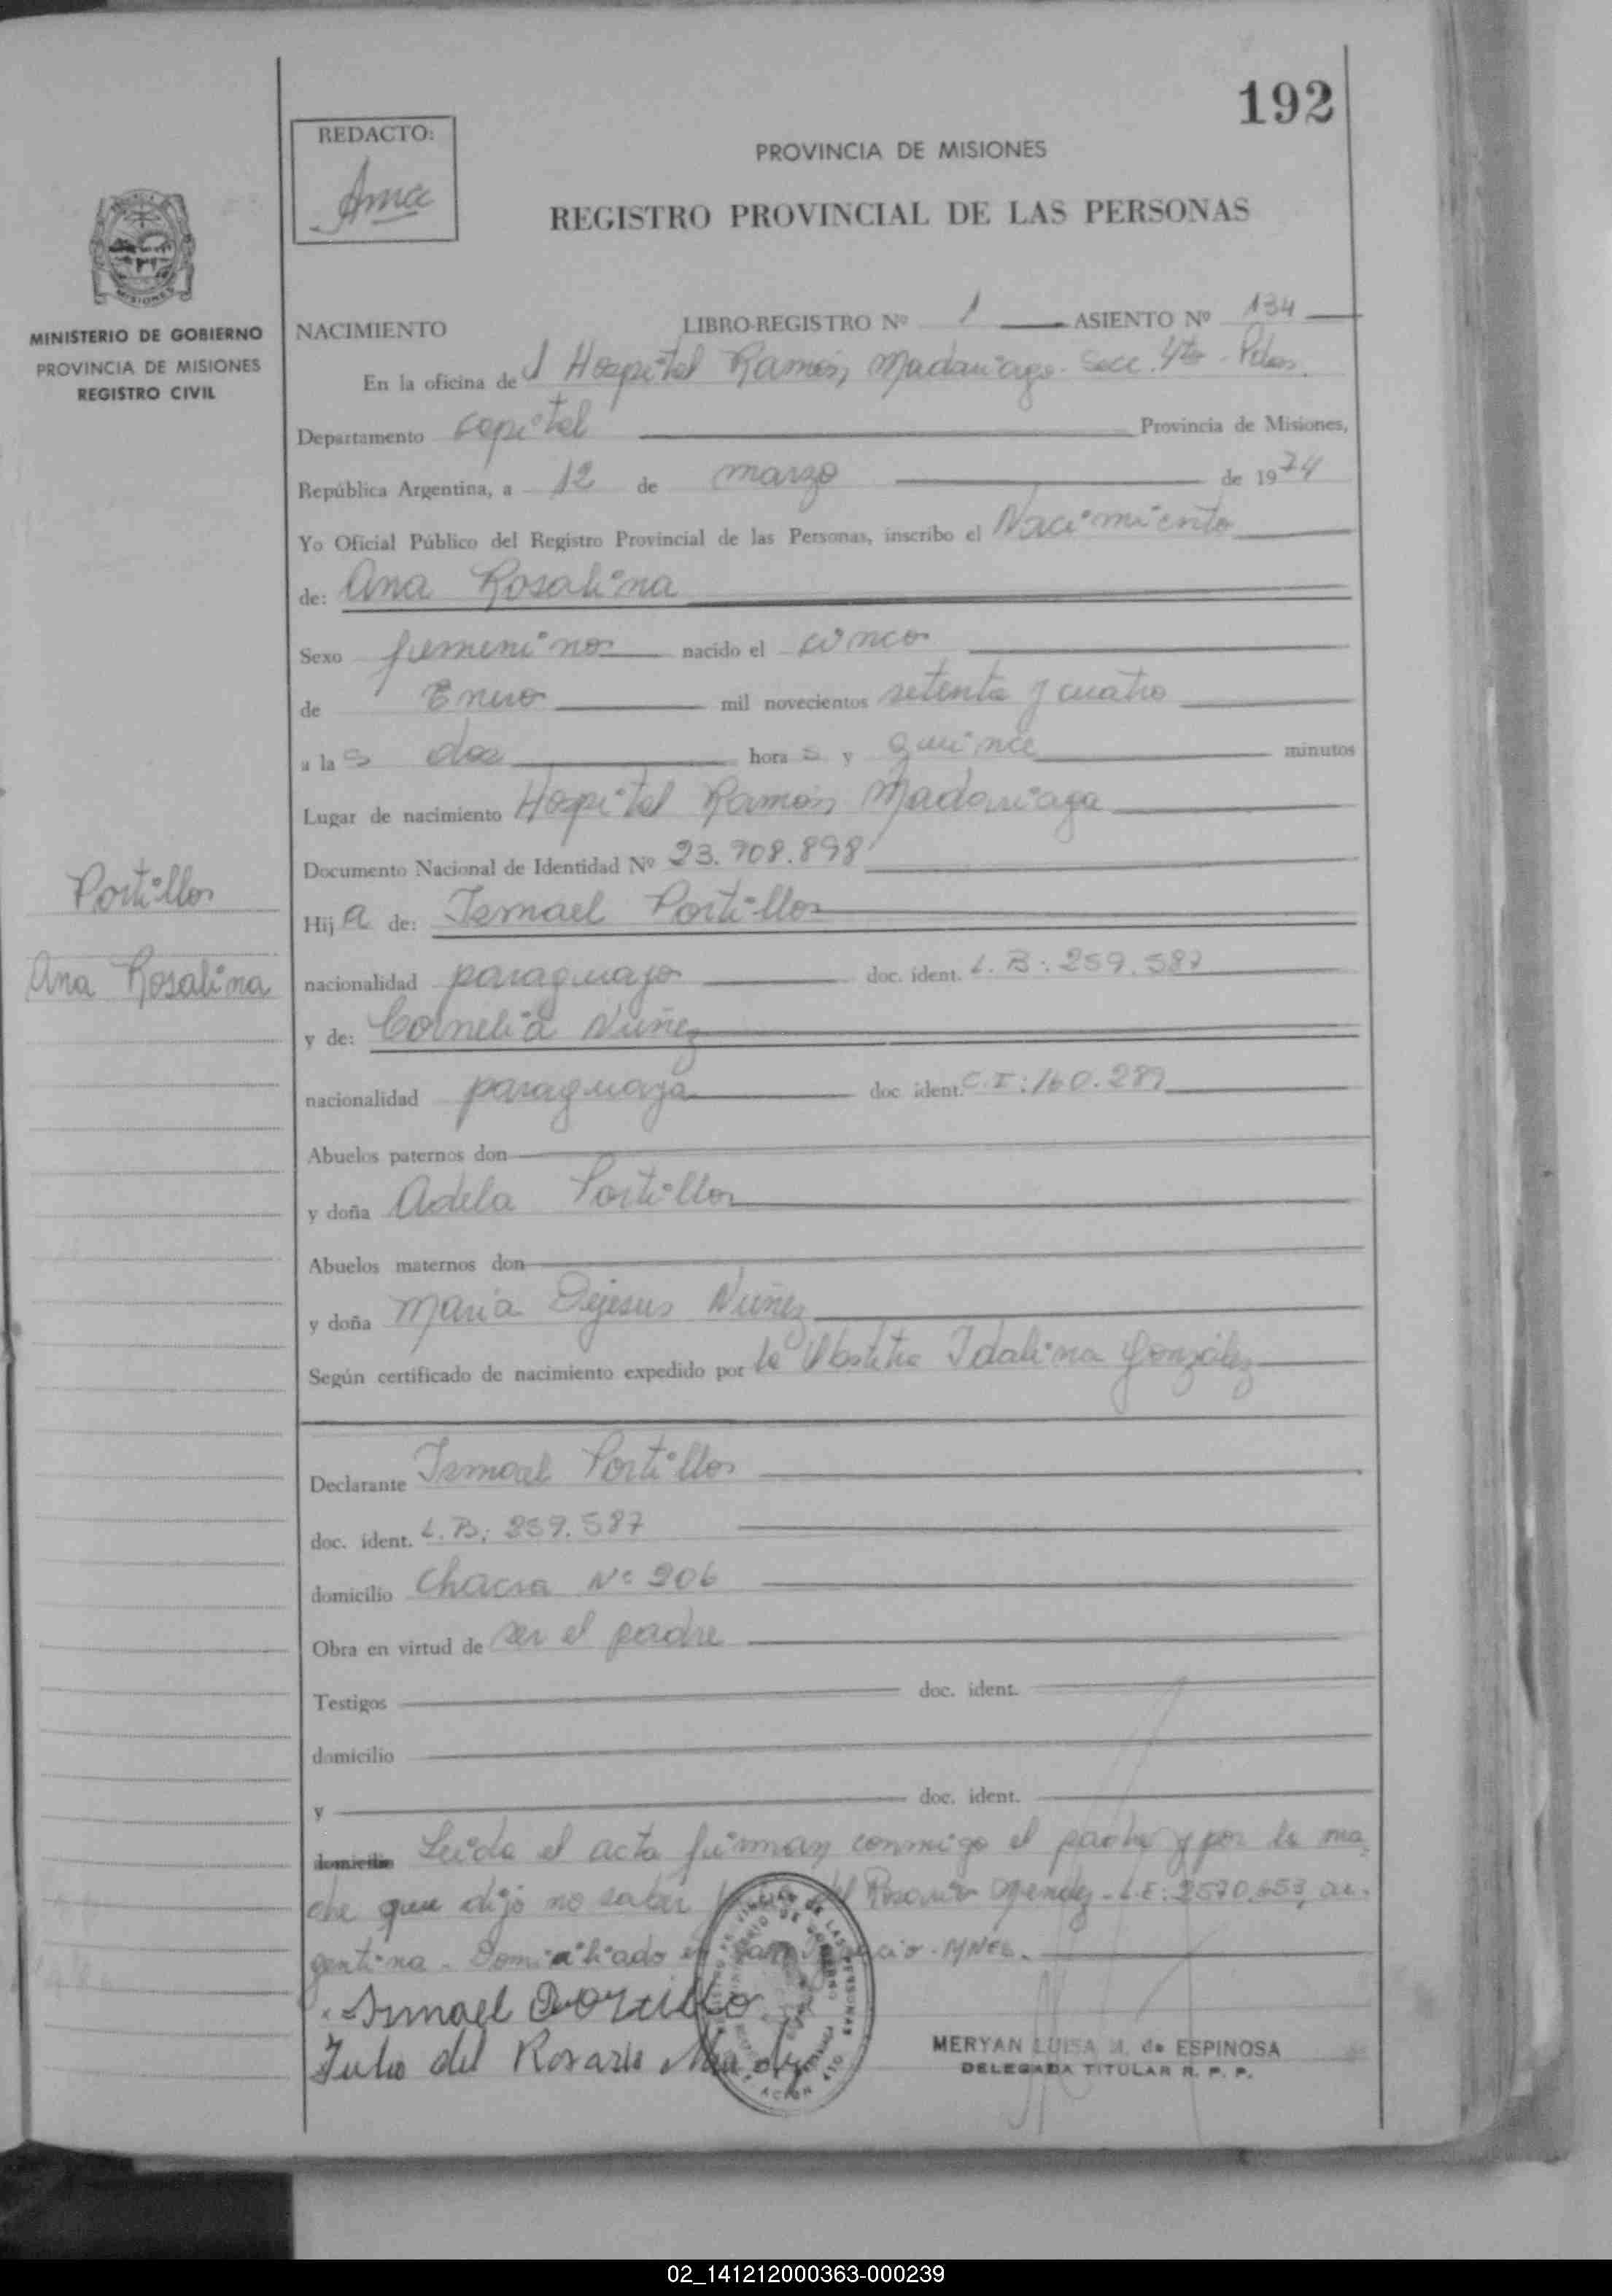 192
REDACTO:
Ama
PROVINCIA DE MISIONES
REGISTRO PROVINCIAL DE LAS PERSONAS
MISIONES
MINISTERIO DE GOBIERNO
PROVINCIA DE MISIONES
REGISTRO CIVIL
NACIMIENTO LIBRO-REGISTRO Nº 1 ASIENTO Nº 134
En la oficina del Hospital Ramón Madariaga - Secc. 4ta - Pdas.
Departamento capital Provincia de Misiones,
República Argentina, a 12 de marzo de 1974
Yo Oficial Público del Registro Provincial de las Personas, inscribo el Nacimiento
de: Ana Rosalina
Sexo femenino nacido el cinco
de Enero mil novecientos setenta y cuatro
a las dos horas y quince minutos
Lugar de nacimiento Hospital Ramón Madariaga
Documento Nacional de Identidad Nº 23.908.898
Portillo
Ana Rosalina
Hija de: Ismael Portillo
nacionalidad paraguayo doc. ident. L.B: 259.587
y de: Cornelia Nuñez
nacionalidad paraguaya doc ident. C.I: 160.289
Abuelos paternos don
y doña Adela Portillo
Abuelos maternos don
y doña Maria Dejesus Nuñez
Según certificado de nacimiento expedido por la Obstetra Idalina González
Declarante Ismael Portillo
doc. ident. L.B: 259.587
domicilio Chacra Nº 206
Obra en virtud de ser el padre
Testigos doc. ident.
domicilio
y doc. ident.
domicilio Leida el acta firman conmigo el padre y por la ma
dre que dijo no saber del Rosario Mendez - L.E: 2570.653, ar
gentina - Domiciliado en San Ignacio - MNES.
Ismael Portillo
Julio del Rosario
MERYAN LUISA M. de ESPINOSA
DELEGADA TITULAR R. P. P.
02_141212000363-000239